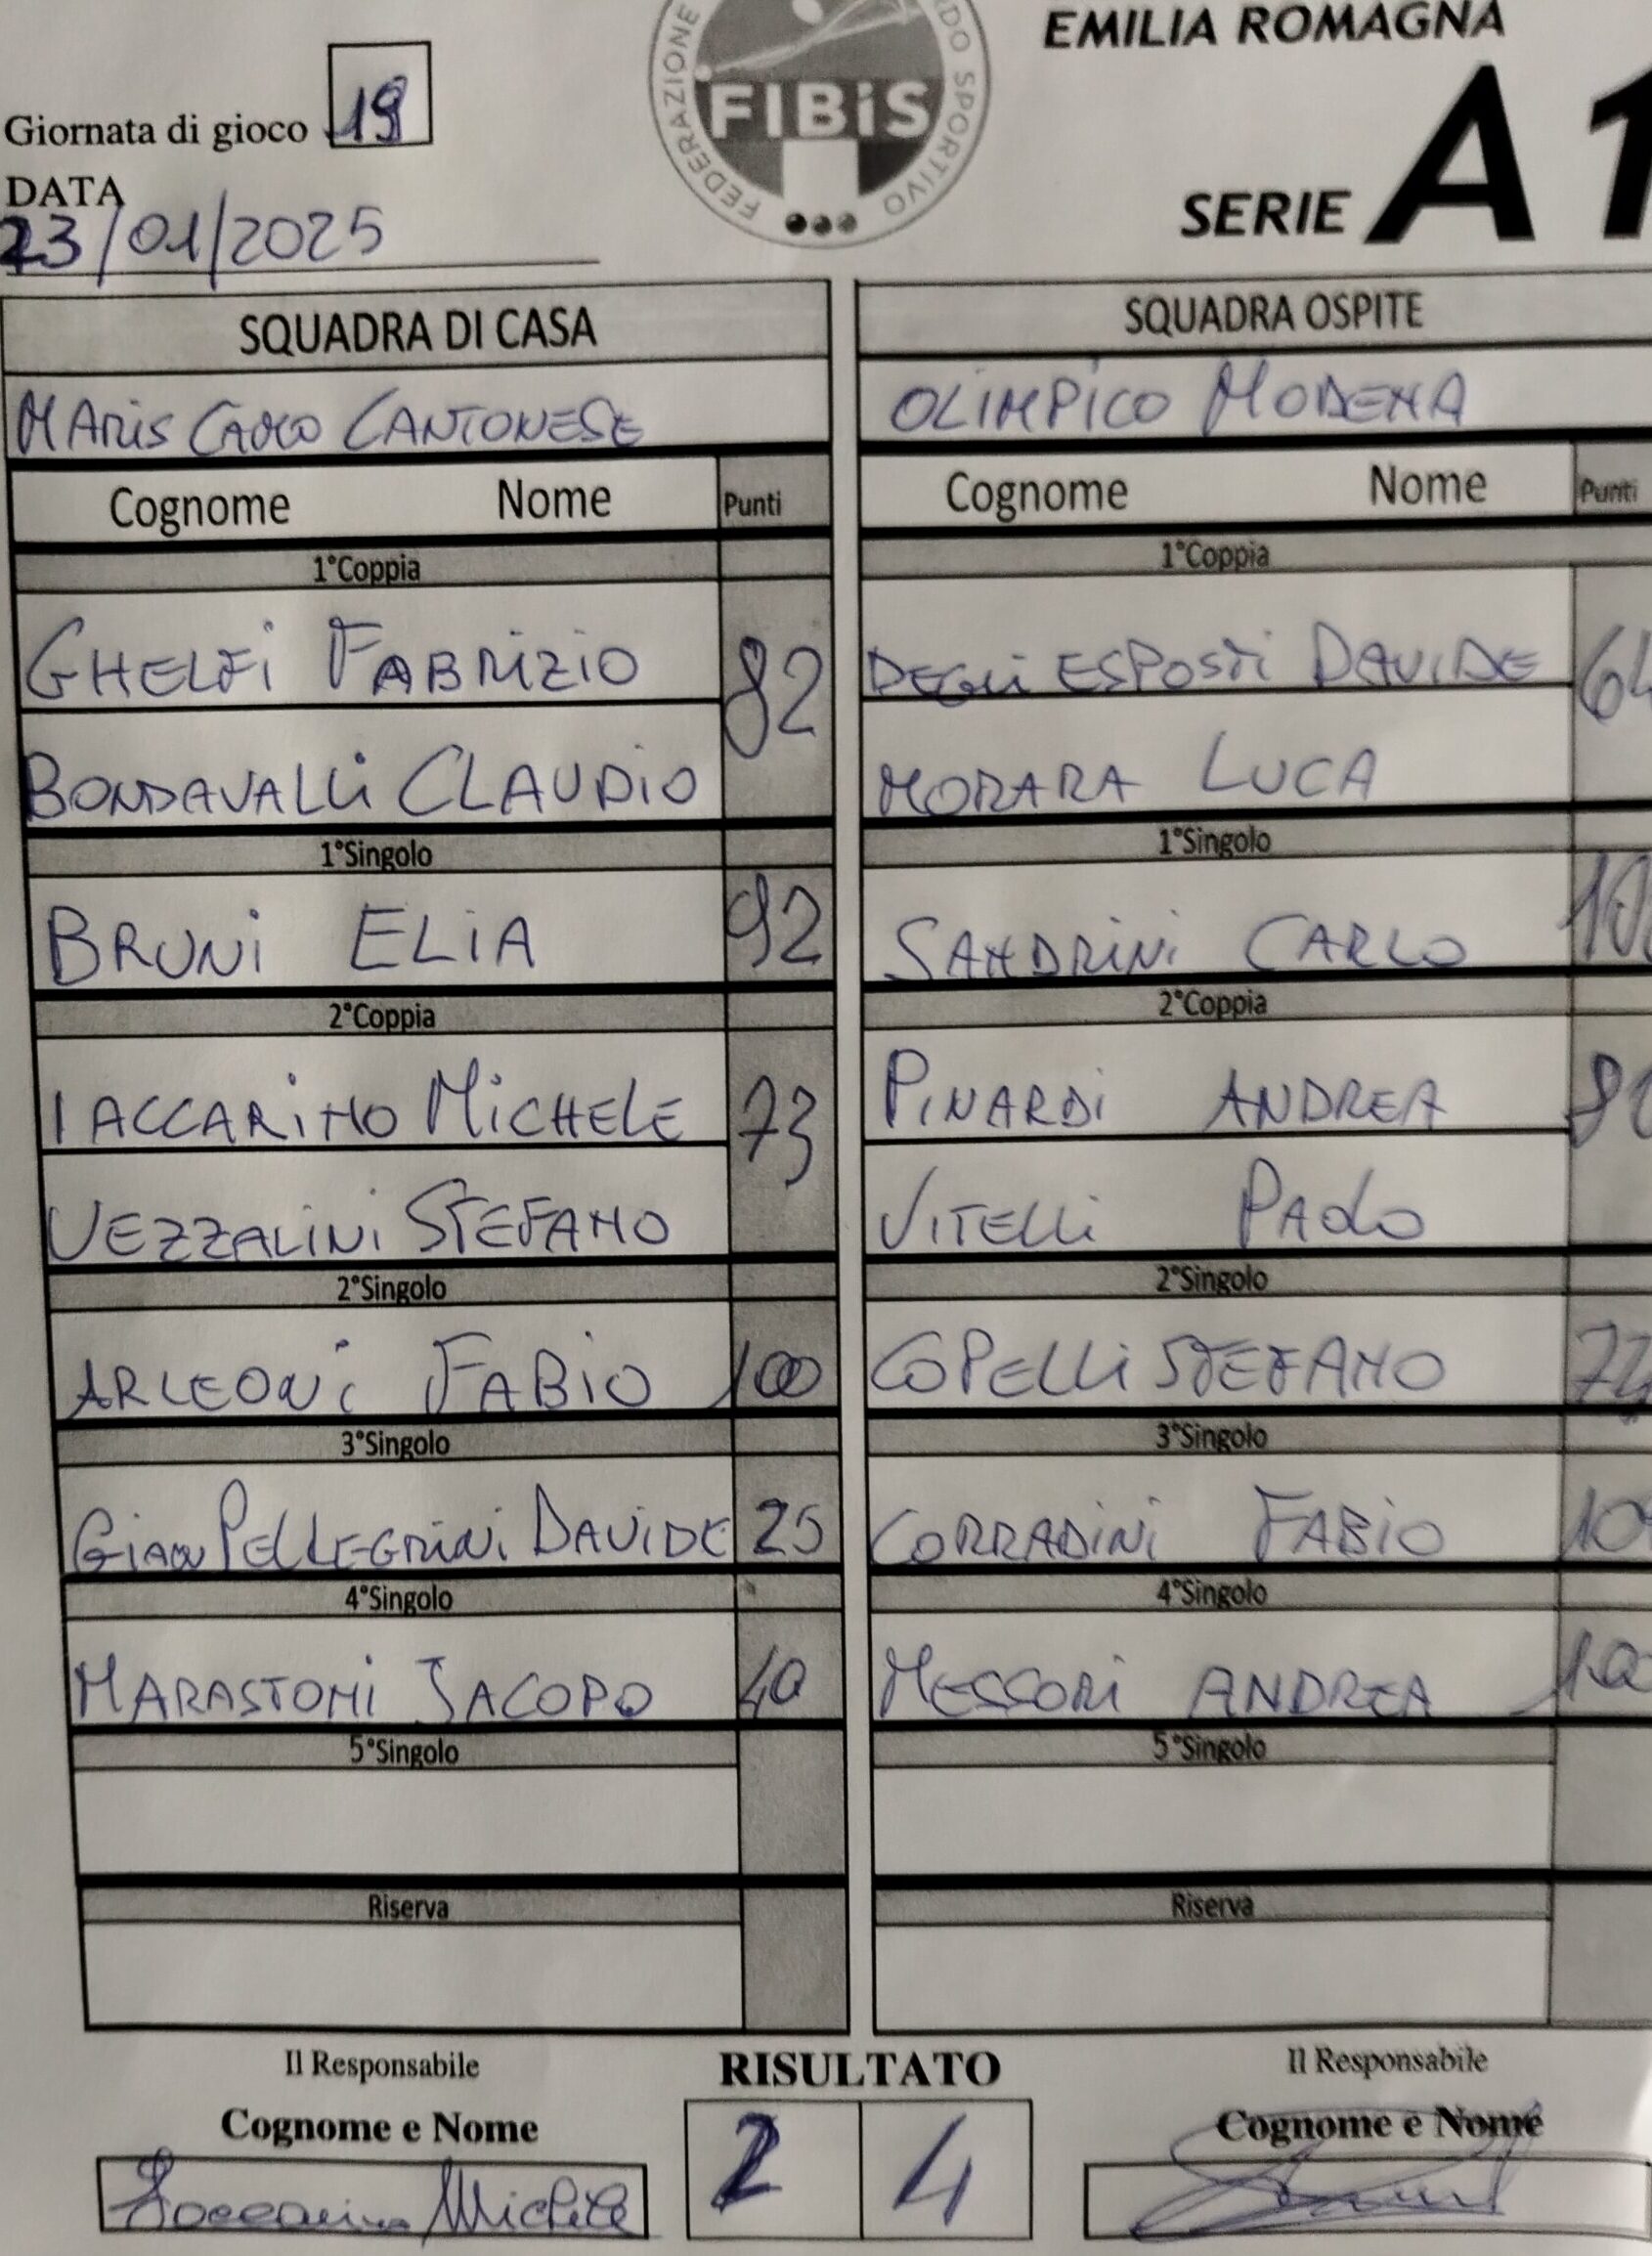 EMILIA ROMAGNA
FEDERAZIONE
SPORTIVO
FIBiS
SERIE A1
Giornata di gioco 19
DATA
23/01/2025
SQUADRA DI CASA
SQUADRA OSPITE
MARIS CANTONESE
OLIMPICO MODENA
Cognome Nome Punti
Cognome Nome Punti
1°Coppia
1°Coppia
GHELFI FABRIZIO 82
DEGLI ESPOSTI DAVIDE
BONDAVALLI CLAUDIO
MORARA LUCA
1°Singolo
1°Singolo
BRUNI ELIA 92
SANDRINI CARLO
2°Coppia
2°Coppia
IACCARINO MICHELE 73
PINARDI ANDREA
VEZZALINI STEFANO
VITELLI PAOLO
2°Singolo
2°Singolo
ARLEONI FABIO 100
COPELLI STEFANO
3°Singolo
3°Singolo
PELLEGRINI DAVIDE 25
CORRADINI FABIO
4°Singolo
4°Singolo
MARASTONI JACOPO 40
MESSORI ANDREA
5°Singolo
5°Singolo
Riserva
Riserva
Il Responsabile
RISULTATO
Il Responsabile
Cognome e Nome
Cognome e Nome
2 4
Iaccarino Michele